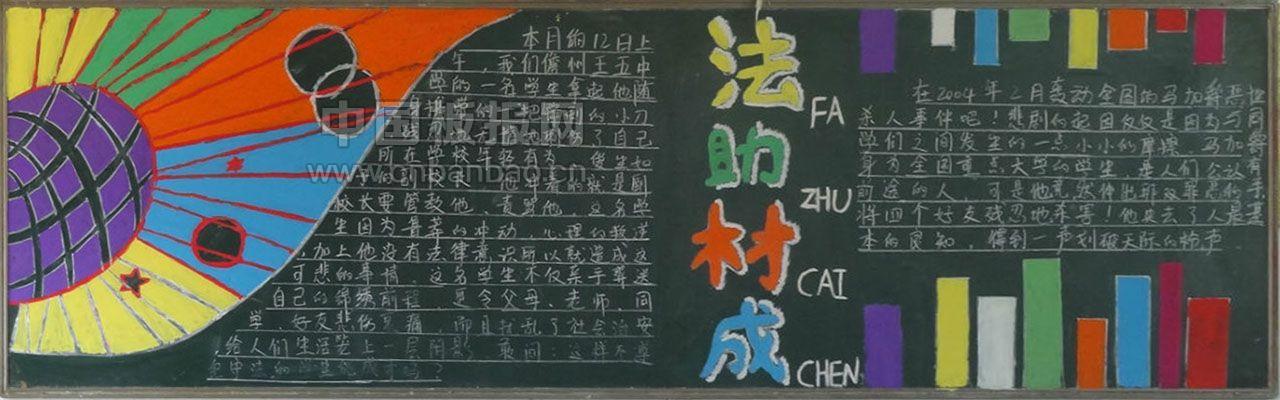 本月的12日上
午,我们儋州王五中
学的一名学生拿起他随
身携带的一把锋利的小刀
自己
所在学校年轻有为
校长要管教他、责骂他,这名学
生因为青春的冲动、心理的叛逆
加上他没有法律意识所以就造成这
可悲的事情。这名学生不仅亲手葬送
自己的锦绣前程,更令父母、老师、同
学、好友悲伤悲痛,而且扰乱了社会治安
给人们生活笼上一层阴影。敢问:这样不
法助材成
FA
ZHU
CAI
CHEN
在2004年2月轰动全国的马加爵恶性
杀人事件吧!悲剧的起因仅仅是因为与同
学们之间发生的一点小小的摩擦。马加爵
身为全国重点大学的学生,是人们公认有
前途的人,可是他竟然伸出那双罪恶的手
将四个好友残忍地杀害!他失去了人最基
本的良知,得到一声划破天际的枪声
中国板报网
www.cnbanbao.cn